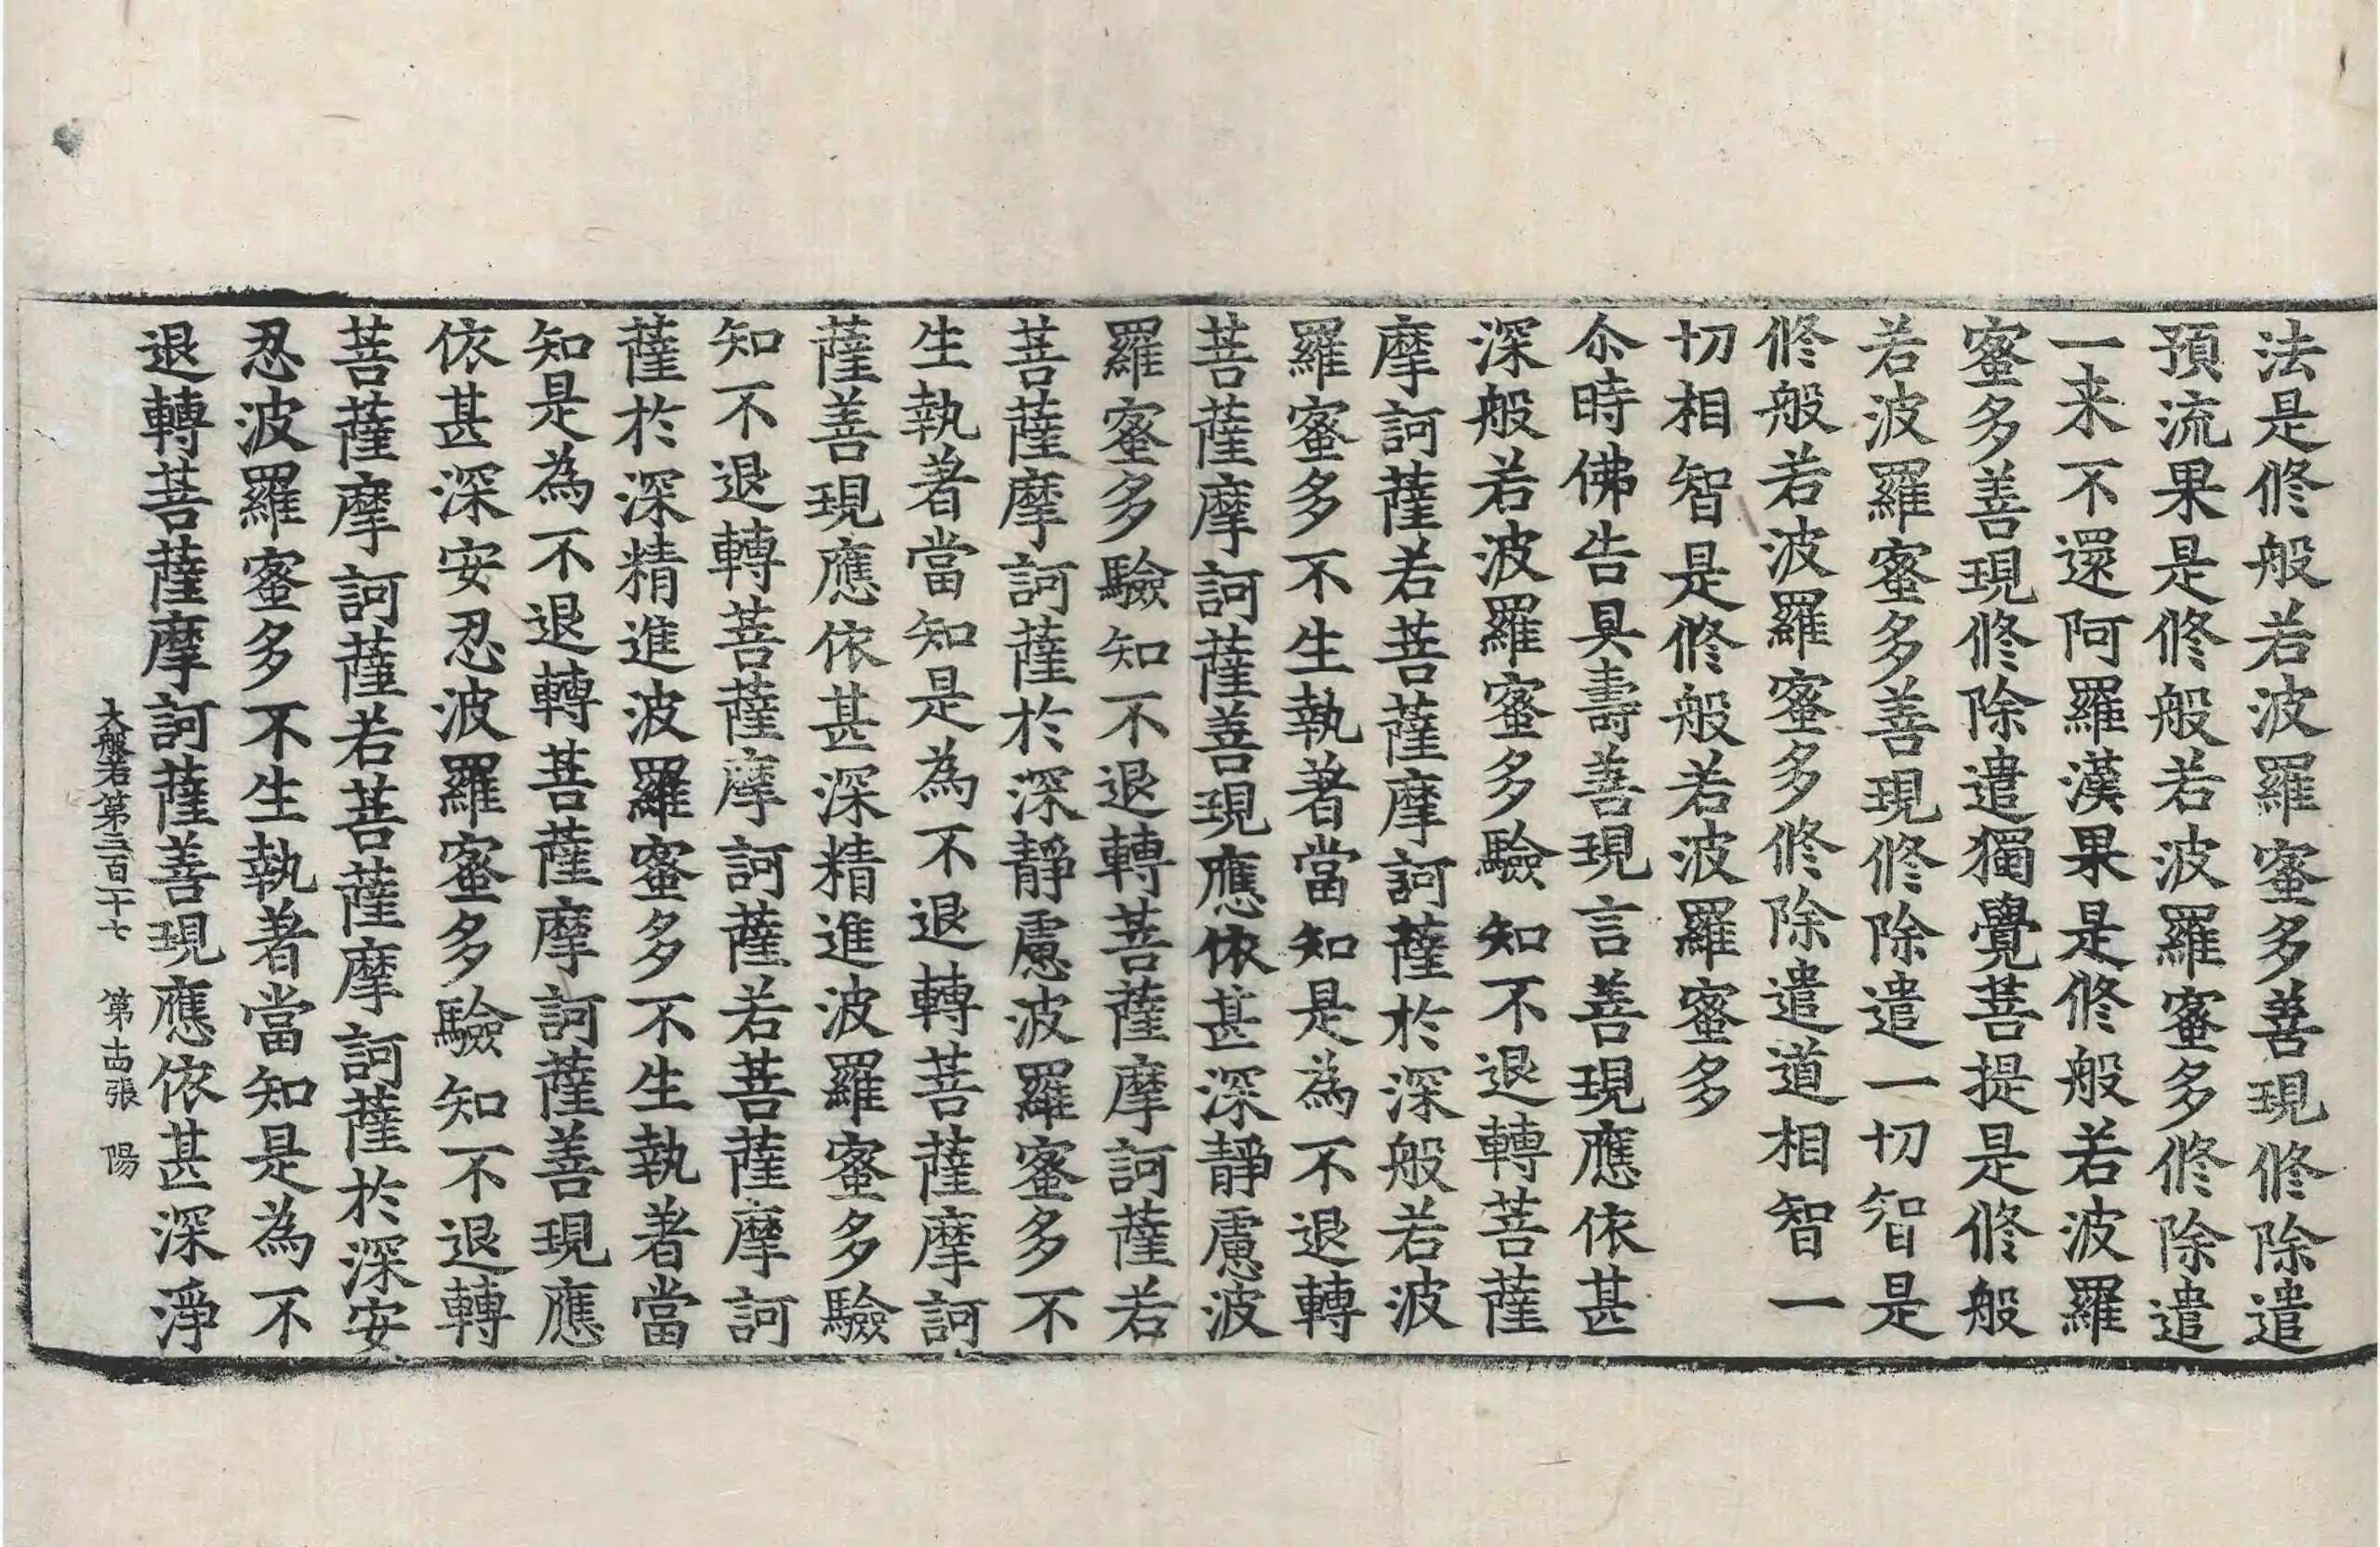 法是修般若波羅蜜多善現修除遣
預流果是修般若波羅蜜多修除遣
一来不還阿羅漢果是修般若波羅
蜜多善現修除遣獨覺菩提是修般
若波羅蜜多善現修除遣一切智是
修般若波羅蜜多修除遣道相智一
切相智是修般若波羅蜜多
尒時佛告具壽善現言善現應依甚
深般若波羅蜜多驗知不退轉菩薩
摩訶薩若菩薩摩訶薩於深般若波
羅蜜多不生執著當知是為不退轉
菩薩摩訶薩善現應依甚深靜慮波
羅蜜多驗知不退轉菩薩摩訶薩若
菩薩摩訶薩於深靜慮波羅蜜多不
生執著當知是為不退轉菩薩摩訶
薩善現應依甚深精進波羅蜜多驗
知不退轉菩薩摩訶薩若菩薩摩訶
薩於深精進波羅蜜多不生執著當
知是為不退轉菩薩摩訶薩善現應
依甚深安忍波羅蜜多驗知不退轉
菩薩摩訶薩若菩薩摩訶薩於深安
忍波羅蜜多不生執著當知是為不
退轉菩薩摩訶薩善現應依甚深淨
大般若第三百二十七 第十四張 陽